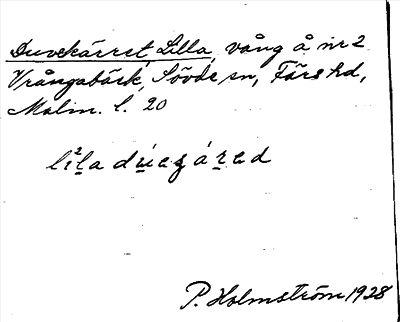 Duvekärret Lilla, vång å nr 2
Vrångabäck, Sövde sn, Färs hd,
Malm. l. 20
P. Holmström 1928